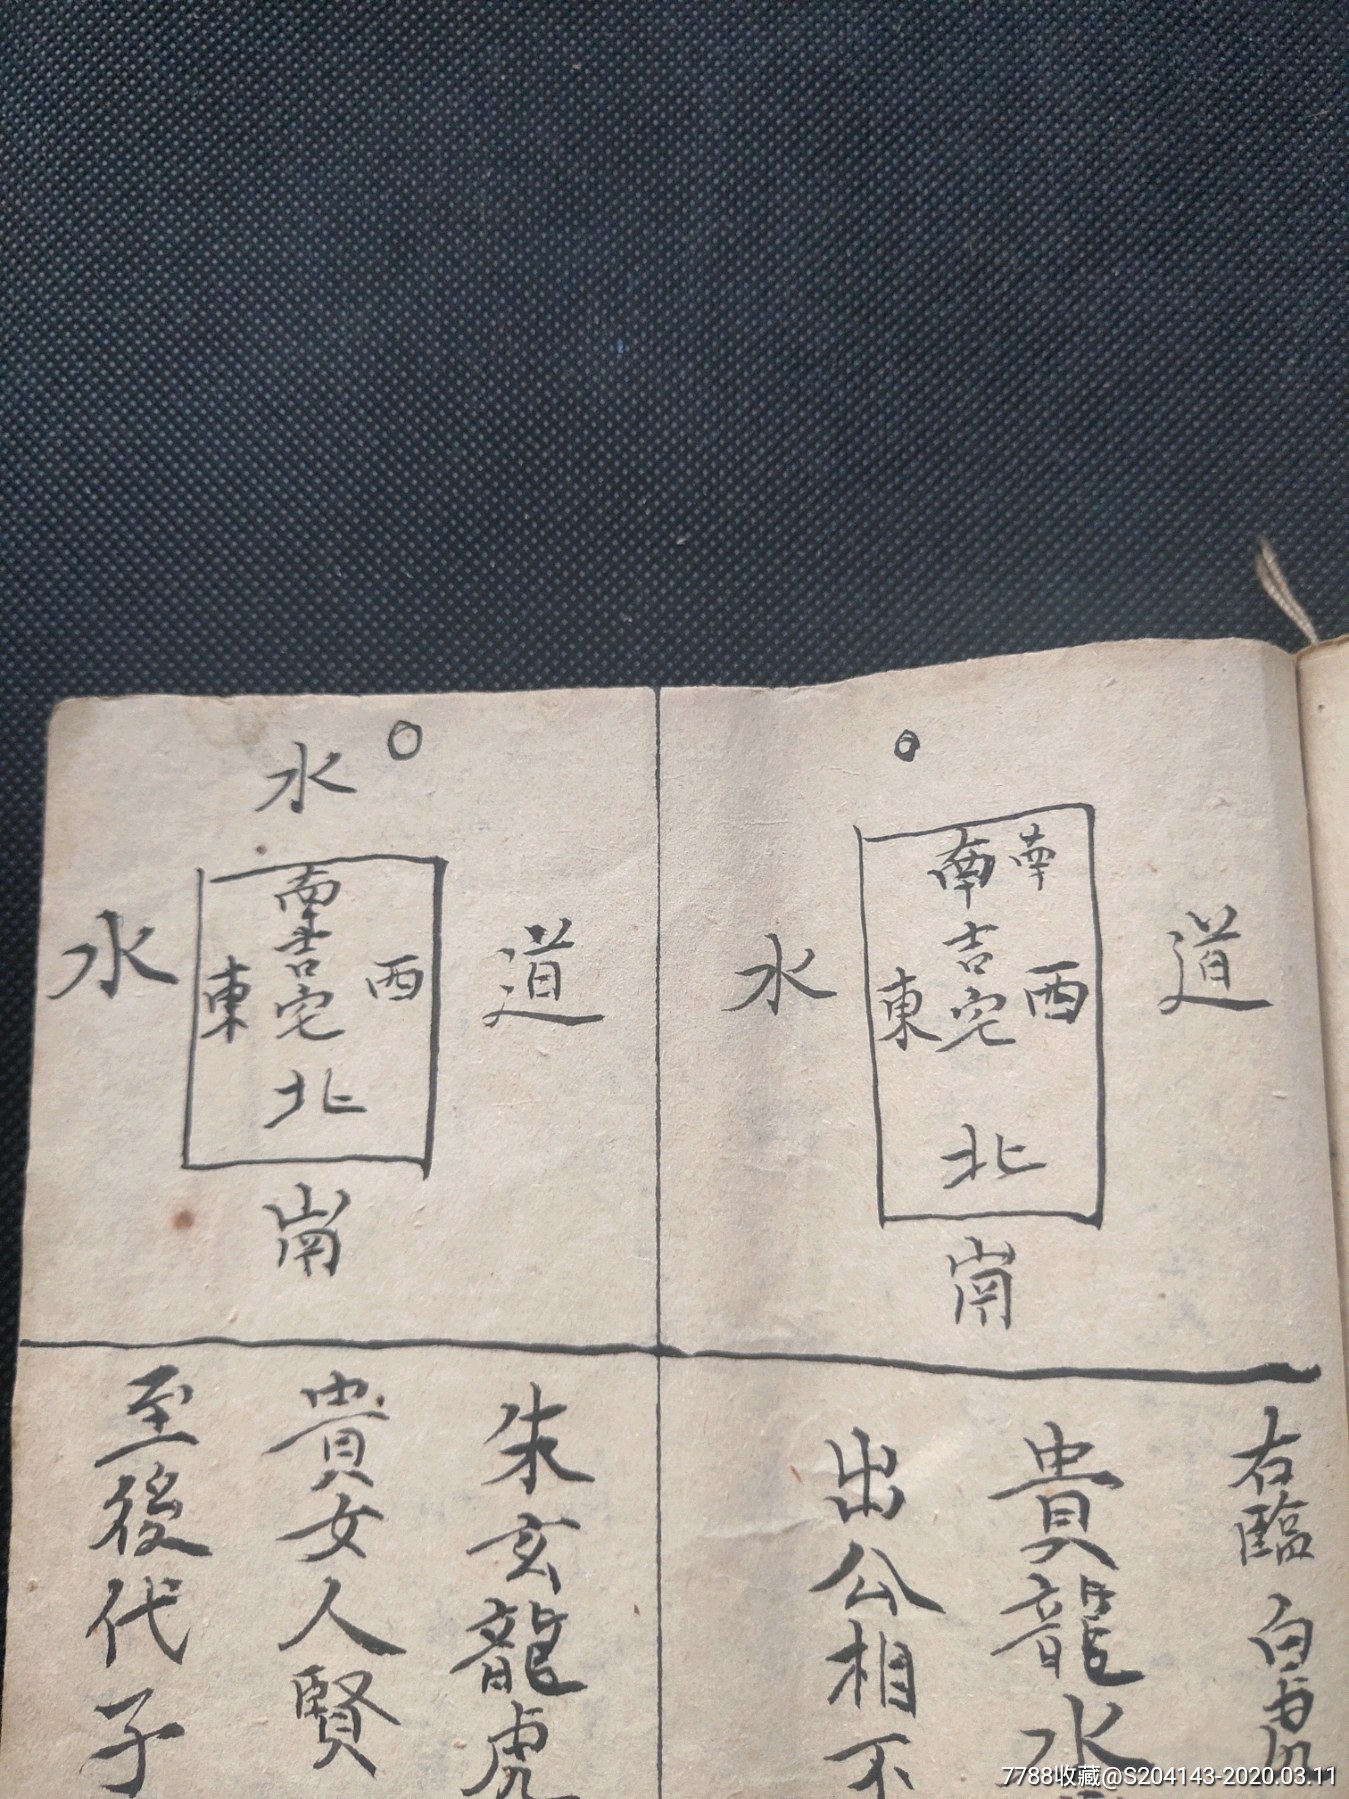 南
南
吉
宅
東
西
北
水
道
崗
右臨白虎
貴龍水
出公相不
水
水
南
吉
宅
東
西
北
道
崗
朱亥龍虎
貴女人賢
至後代子
7788收藏@S204143-2020.03.11